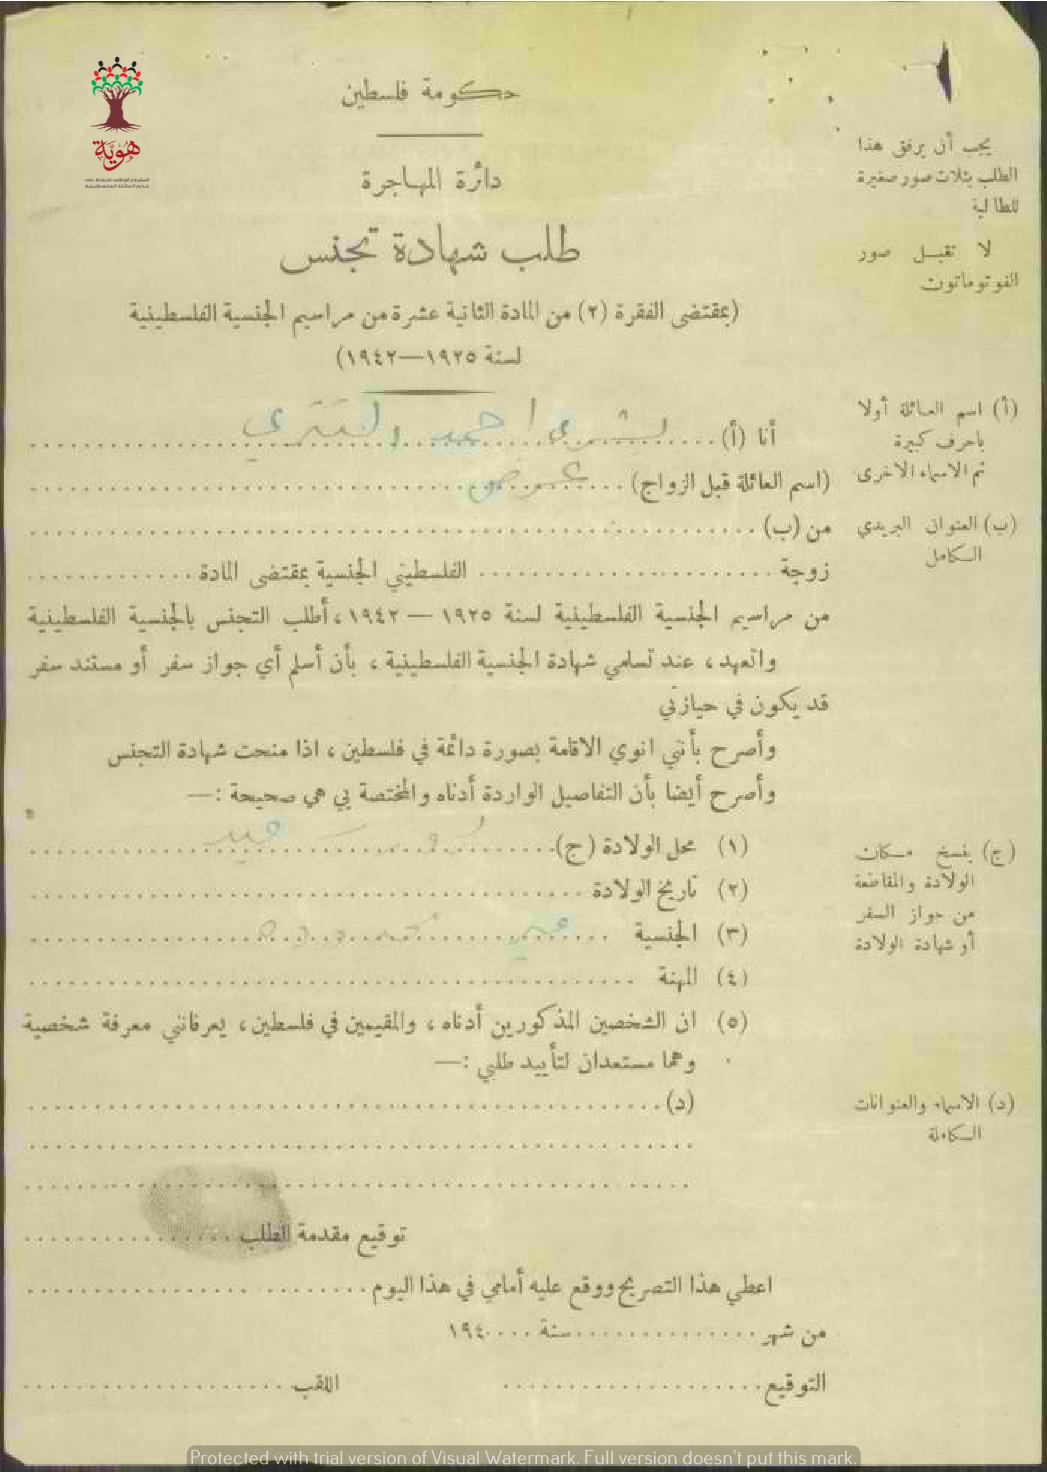 هويّة
حكومة فلسطين
دائرة المهاجرة
طلب شهادة تجنس
(بمقتضى الفقرة (٢) من المادة الثانية عشرة من مراسيم الجنسية الفلسطينية
لسنة ١٩٢٥—١٩٤٢)
يجب أن يرفق هذا
الطلب بثلاث صور صغيرة
للطالبة
لا تقبل صور
الفوتوماتون
أنا (أ) بشرى احمد
(أ) اسم العائلة أولا
باحرف كبيرة
ثم الاسماء الاخرى
(اسم العائلة قبل الزواج) عوض
من (ب)
(ب) العنوان البريدي
الكامل
زوجة الفلسطيني الجنسية بمقتضى المادة
من مراسيم الجنسية الفلسطينية لسنة ١٩٢٥ — ١٩٤٢، أطلب التجنس بالجنسية الفلسطينية
واتعهد، عند تسلمي شهادة الجنسية الفلسطينية، بأن أسلم أي جواز سفر أو مستند سفر
قد يكون في حيازتي
وأصرح بأنني انوي الاقامة بصورة دائمة في فلسطين، اذا منحت شهادة التجنس
وأصرح أيضا بأن التفاصيل الواردة أدناه والمختصة بي هي صحيحة :—
(١) محل الولادة (ج)
(٢) تاريخ الولادة
(٣) الجنسية
(٤) المهنة
(ج) ينسخ مكان
الولادة والمقاطعة
من جواز السفر
أو شهادة الولادة
(٥) ان الشخصين المذكورين أدناه، والمقيمين في فلسطين، يعرفانني معرفة شخصية
وهما مستعدان لتأييد طلبي :—
(د)
(د) الاسماء والعنوانات
الكاملة
توقيع مقدمة الطلب
اعطي هذا التصريح ووقع عليه أمامي في هذا اليوم
من شهر سنة ١٩٤٠
التوقيع اللقب
Protected with trial version of Visual Watermark. Full version doesn't put this mark.